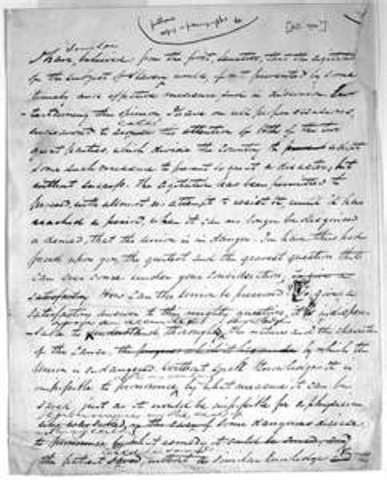 I have believed from the first, Senators, that the agitation
of the subject of slavery would, if not prevented by some
timely and effective measure end in disunion. En-
-tertaining this opinion I have on all proper occasions,
endeavored to the attention of both of the two
great parties, which divide the country to adopt
some such measure to prevent so great a disaster, but
without success. The agitation has been permitted to
proceed, with almost no attempt to resist it until it has
reached a period, when it can no longer be disguised
or denied, that the Union is in danger. You have thus had
forced upon you the greatest and the gravest question that
can ever come under your consideration,
How can the Union be preserved To give a
satisfactory answer to this mighty question, it is indispen-
-sable to the nature and the character
of the cause, by which the
Union is endangered. Without such knowledge it is
impossible to pronounce, by what measure it can be
saved, just as it would be impossible for a physician
some dangerous disease
to pronounce by what remedy, it could be
the patient saved, without similar knowledge